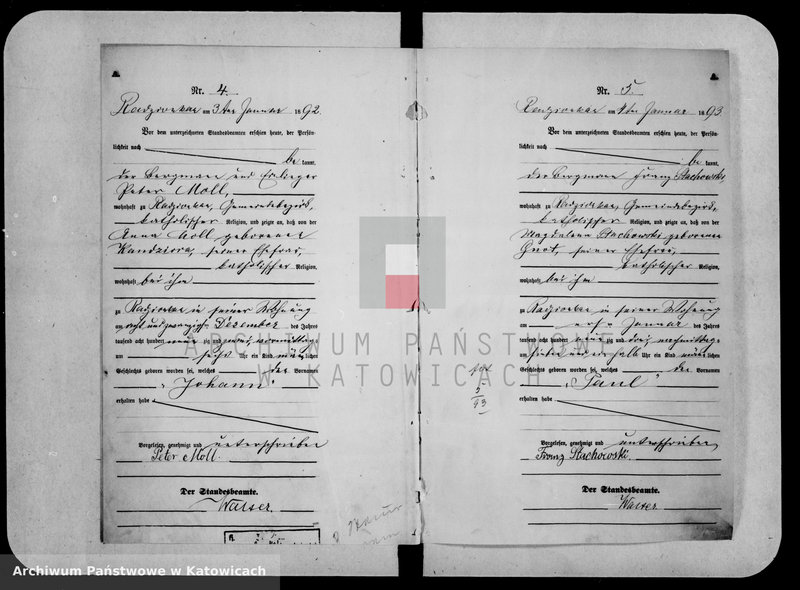 Nr. 4.
Radzionkau am 3ten Januar 1892.
Vor dem unterzeichneten Standesbeamten erschien heute, der Persön-
lichkeit nach
be kannt,
der Bergmann und
Peter Moll,
wohnhaft zu Radzionkau, Gemeindebezirk,
katholischer Religion, und zeigte an, daß von der
Anna Moll geborenen
Kandziora, seiner Ehefrau,
katholischer Religion,
wohnhaft bei ihm
zu Radzionkau in seiner Wohnung
am acht und zwanzigsten Dezember des Jahres
tausend acht hundert neun zig und zwei, vormittags
um sechs Uhr ein Kind männlichen
Geschlechts geboren worden sei, welches den Vornamen
"Johann"
erhalten habe
Vorgelesen, genehmigt und unterschrieben
Peter Moll.
Der Standesbeamte.
Walter.
Nr. 5.
Radzionkau am 4ten Januar 1893.
Vor dem unterzeichneten Standesbeamten erschien heute, der Persön-
lichkeit nach
be kannt,
der Bergmann Franz Stachowski,
wohnhaft zu Radzionkau, Gemeindebezirk,
katholischer Religion, und zeigte an, daß von der
Magdalena Stachowski geborenen
seiner Ehefrau,
katholischer Religion,
wohnhaft bei ihm
zu Radzionkau in seiner Wohnung
am ersten Januar des Jahres
tausend acht hundert neun zig und drei, nachmittags
um sieben und ein halb Uhr ein Kind männlichen
Geschlechts geboren worden sei, welches den Vornamen
"Paul"
erhalten habe
Vorgelesen, genehmigt und unterschrieben
Franz Stachowski.
Der Standesbeamte.
Walter
ARCHIWUM PAŃSTWOWE
W KATOWICACH
Archiwum Państwowe w Katowicach